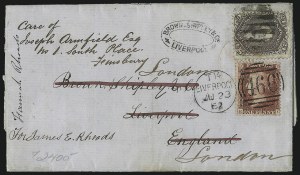 Care of
Joseph Armfield Esq
No 1. South Place
Finsbury
London
Brown, Shipley & Co
Liverpool
England
London
For James E. Rhoads
Hannah Rhoads
"2400"
BROWN, SHIPLEY & CO.
LIVERPOOL
LIVERPOOL
JU 23
62
466